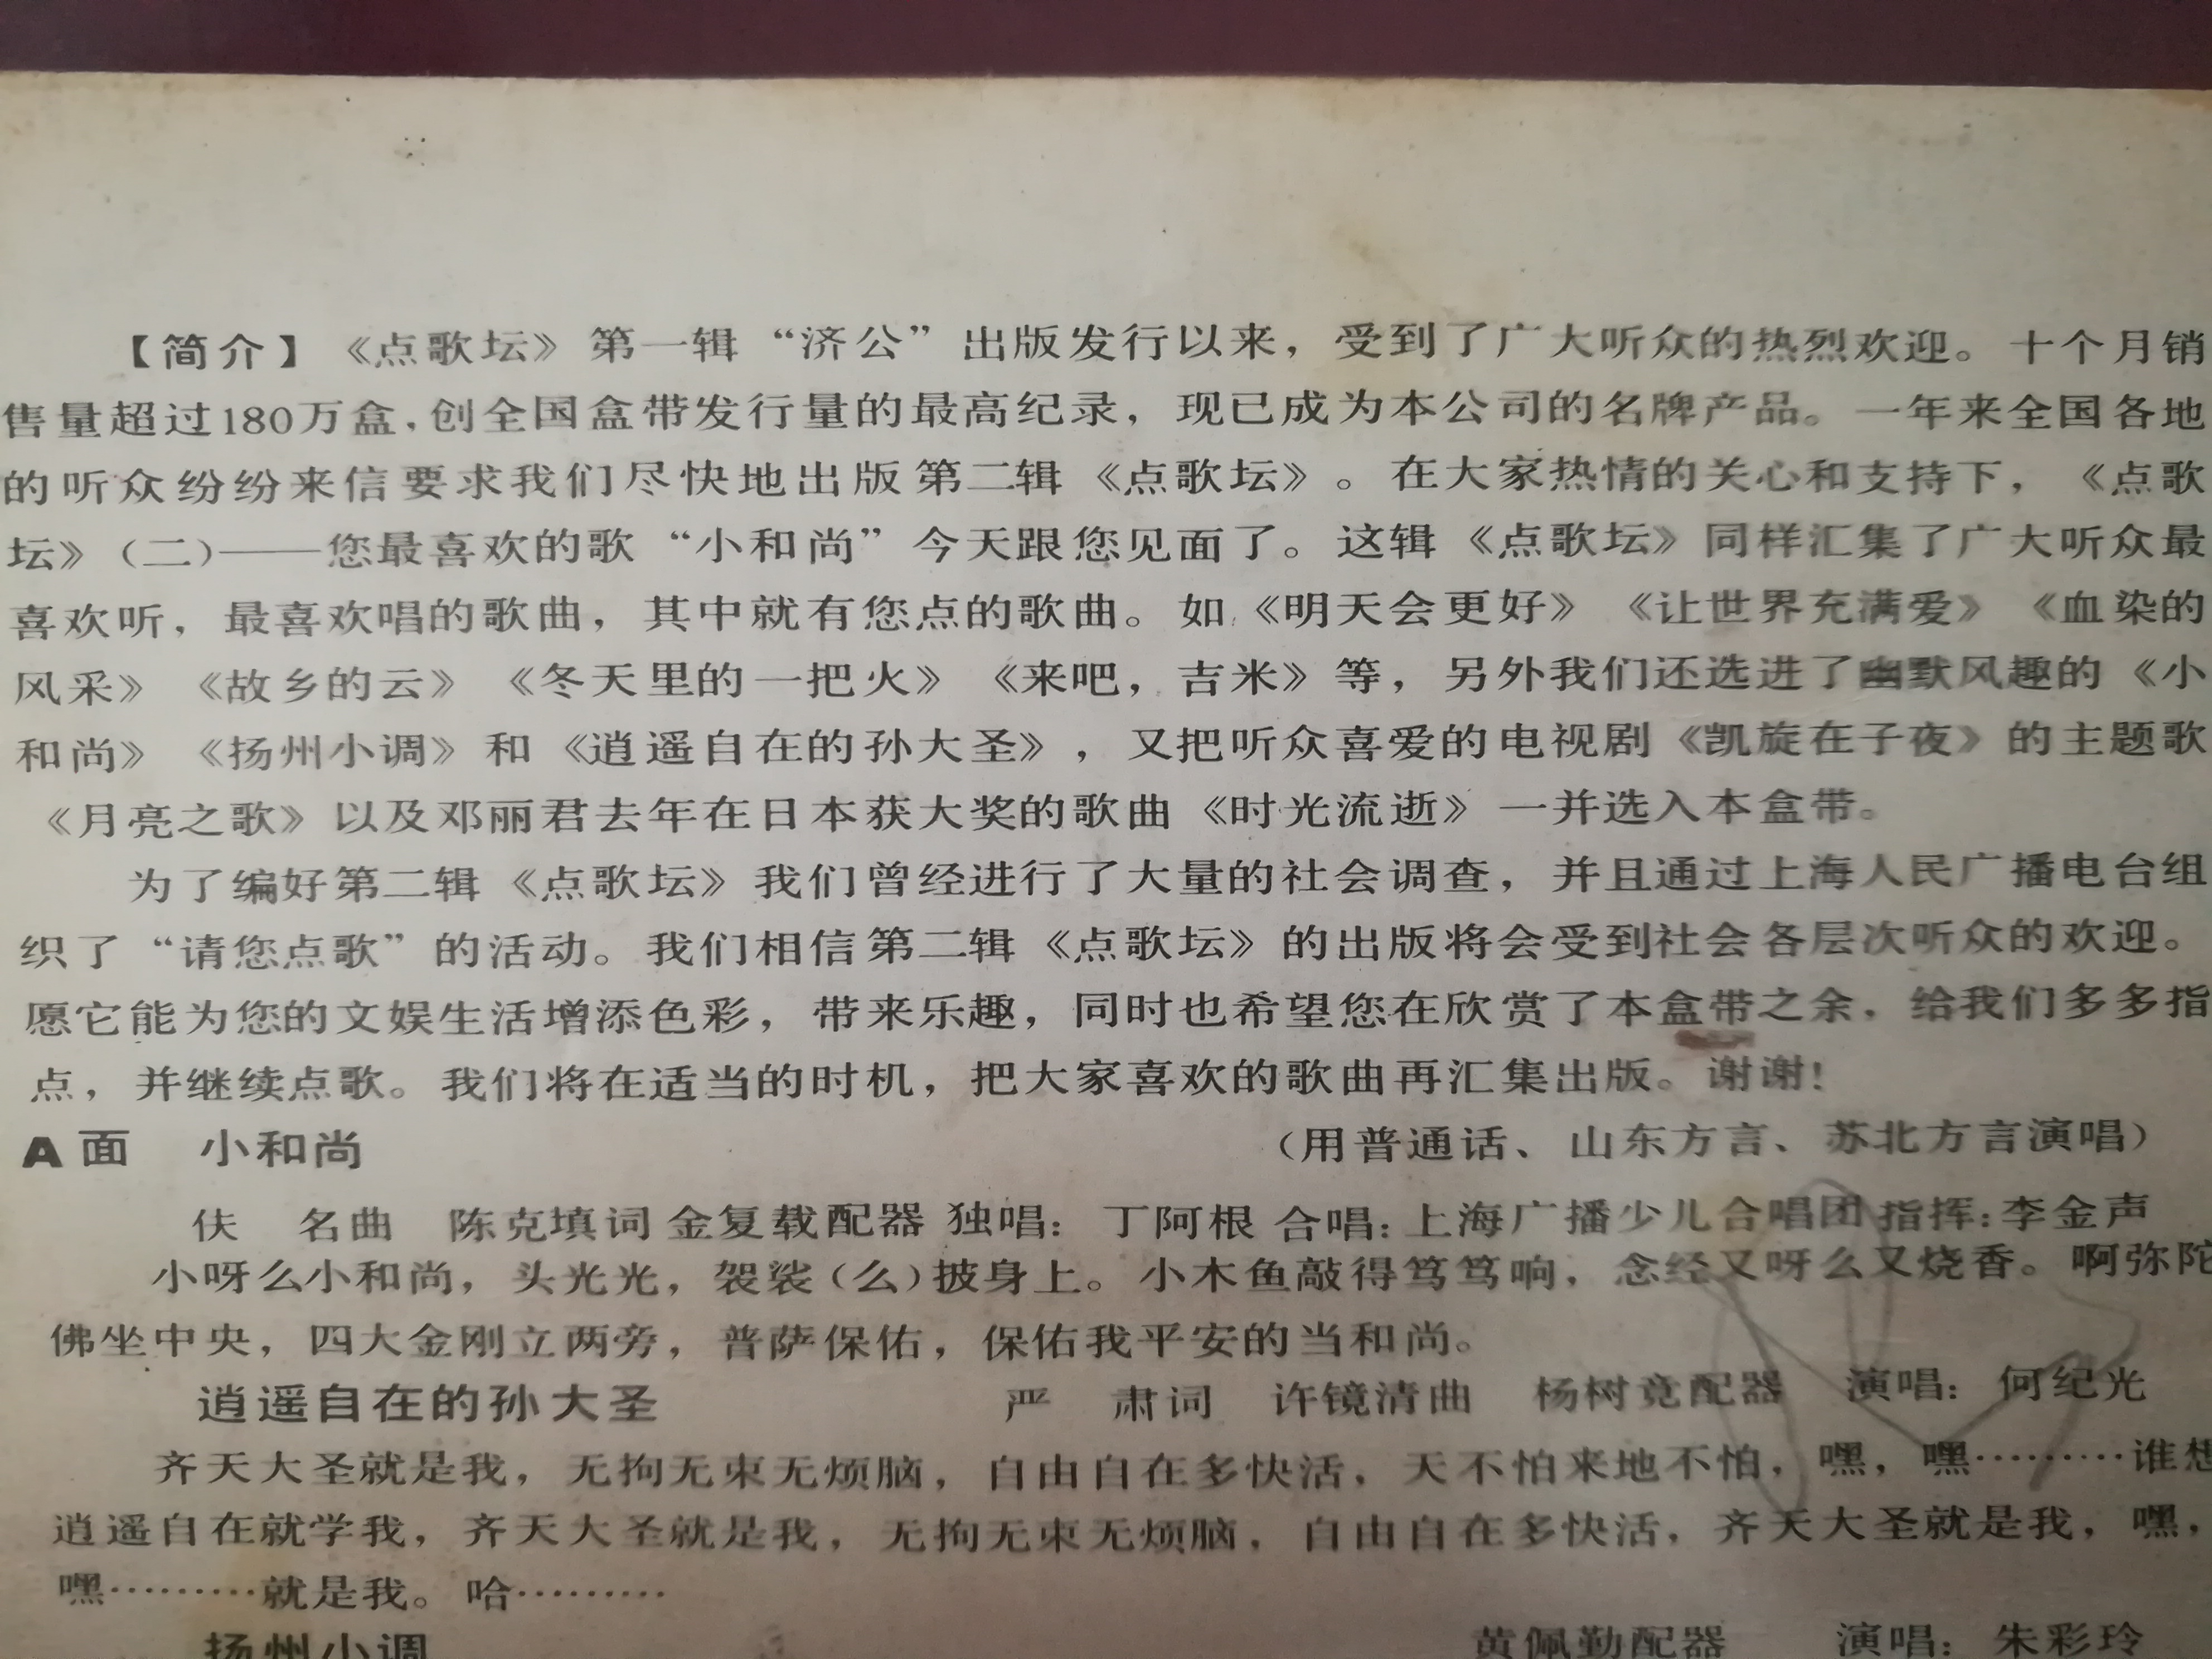 【简介】《点歌坛》第一辑“济公”出版发行以来，受到了广大听众的热烈欢迎。十个月销
售量超过180万盒，创全国盒带发行量的最高纪录，现已成为本公司的名牌产品。一年来全国各地
的听众纷纷来信要求我们尽快地出版第二辑《点歌坛》。在大家热情的关心和支持下，《点歌
坛》（二）——您最喜欢的歌“小和尚”今天跟您见面了。这辑《点歌坛》同样汇集了广大听众最
喜欢听，最喜欢唱的歌曲，其中就有您点的歌曲。如《明天会更好》《让世界充满爱》《血染的
风采》《故乡的云》《冬天里的一把火》《来吧，吉米》等，另外我们还选进了幽默风趣的《小
和尚》《扬州小调》和《逍遥自在的孙大圣》，又把听众喜爱的电视剧《凯旋在子夜》的主题歌
《月亮之歌》以及邓丽君去年在日本获大奖的歌曲《时光流逝》一并选入本盒带。
为了编好第二辑《点歌坛》我们曾经进行了大量的社会调查，并且通过上海人民广播电台组
织了“请您点歌”的活动。我们相信第二辑《点歌坛》的出版将会受到社会各层次听众的欢迎。
愿它能为您的文娱生活增添色彩，带来乐趣，同时也希望您在欣赏了本盒带之余，给我们多多指
点，并继续点歌。我们将在适当的时机，把大家喜欢的歌曲再汇集出版。谢谢！
A面 小和尚 （用普通话、山东方言、苏北方言演唱）
佚 名曲 陈克填词 金复载配器 独唱：丁阿根 合唱：上海广播少儿合唱团 指挥：李金声
小呀么小和尚，头光光，袈裟（么）披身上。小木鱼敲得笃笃响，念经又呀么又烧香。啊弥陀
佛坐中央，四大金刚立两旁，普萨保佑，保佑我平安的当和尚。
逍遥自在的孙大圣 严 肃词 许镜清曲 杨树竟配器 演唱：何纪光
齐天大圣就是我，无拘无束无烦脑，自由自在多快活，天不怕来地不怕，嘿，嘿………谁想
逍遥自在就学我，齐天大圣就是我，无拘无束无烦脑，自由自在多快活，齐天大圣就是我，嘿，
嘿………就是我。哈………
扬州小调 黄佩勤配器 演唱：朱彩玲